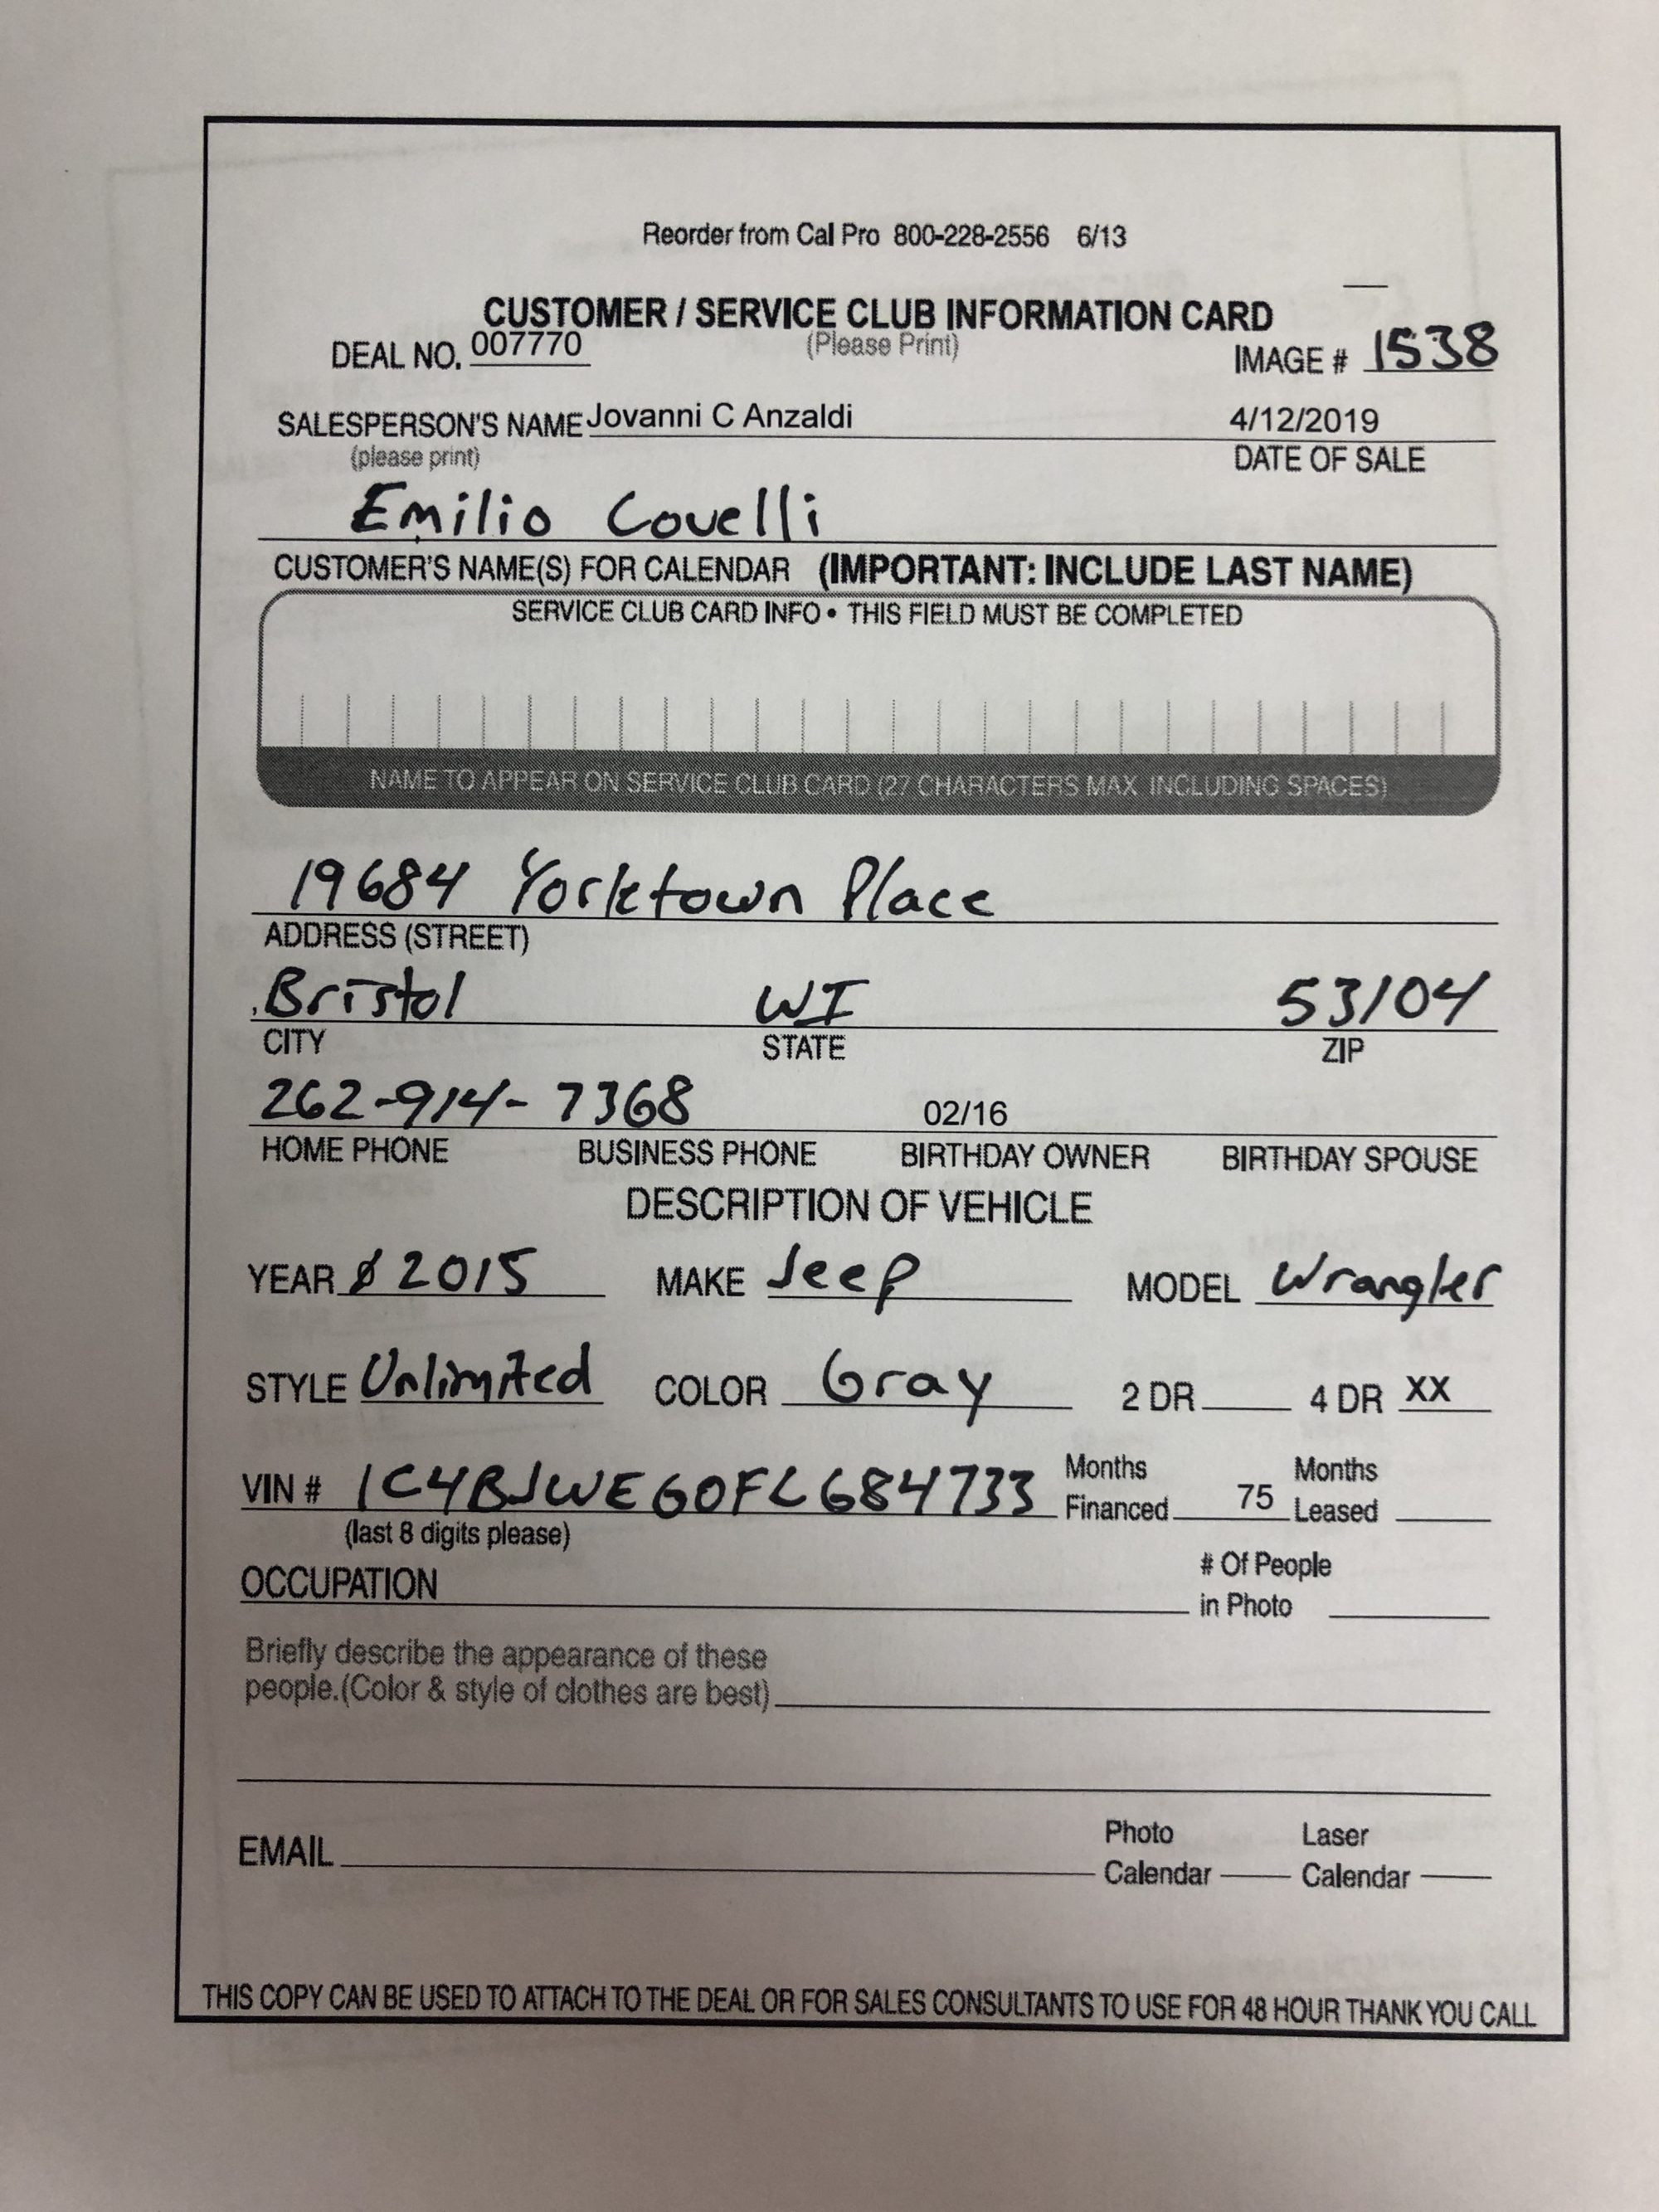 Reorder from Cal Pro 800-228-2556 6/13
CUSTOMER / SERVICE CLUB INFORMATION CARD
DEAL NO. 007770 (Please Print) IMAGE # 1538
SALESPERSON'S NAME Jovanni C Anzaldi 4/12/2019
(please print) DATE OF SALE
Emilio Covelli
CUSTOMER'S NAME(S) FOR CALENDAR (IMPORTANT: INCLUDE LAST NAME)
SERVICE CLUB CARD INFO • THIS FIELD MUST BE COMPLETED
NAME TO APPEAR ON SERVICE CLUB CARD (27 CHARACTERS MAX. INCLUDING SPACES)
19684 Yorktown Place
ADDRESS (STREET)
Bristol WI 53104
CITY STATE ZIP
262-914-7368 02/16
HOME PHONE BUSINESS PHONE BIRTHDAY OWNER BIRTHDAY SPOUSE
DESCRIPTION OF VEHICLE
YEAR 2015 MAKE Jeep MODEL Wrangler
STYLE Unlimited COLOR Gray 2 DR 4 DR XX
VIN # 1C4BJWEG0FL684733 Months Financed 75 Months Leased
(last 8 digits please)
OCCUPATION # Of People in Photo
Briefly describe the appearance of these
people.(Color & style of clothes are best)
EMAIL Photo Calendar Laser Calendar
THIS COPY CAN BE USED TO ATTACH TO THE DEAL OR FOR SALES CONSULTANTS TO USE FOR 48 HOUR THANK YOU CALL